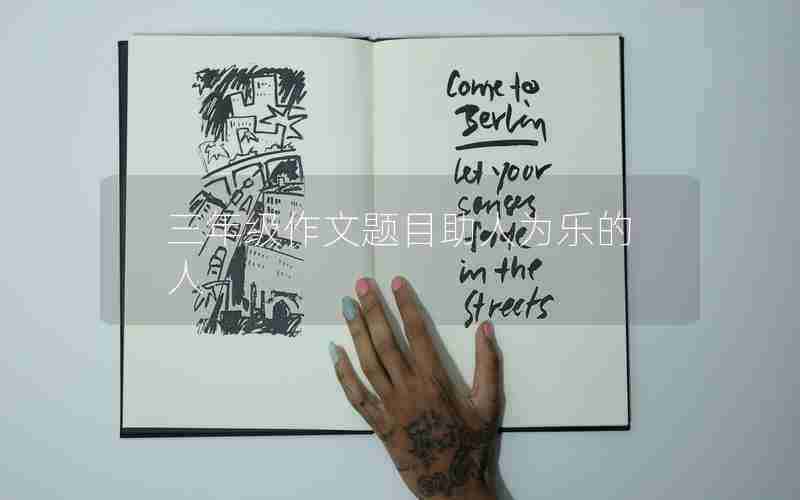 Come to
Berlin
let your
senses
in the
streets
三年级作文题目助人为乐的
人